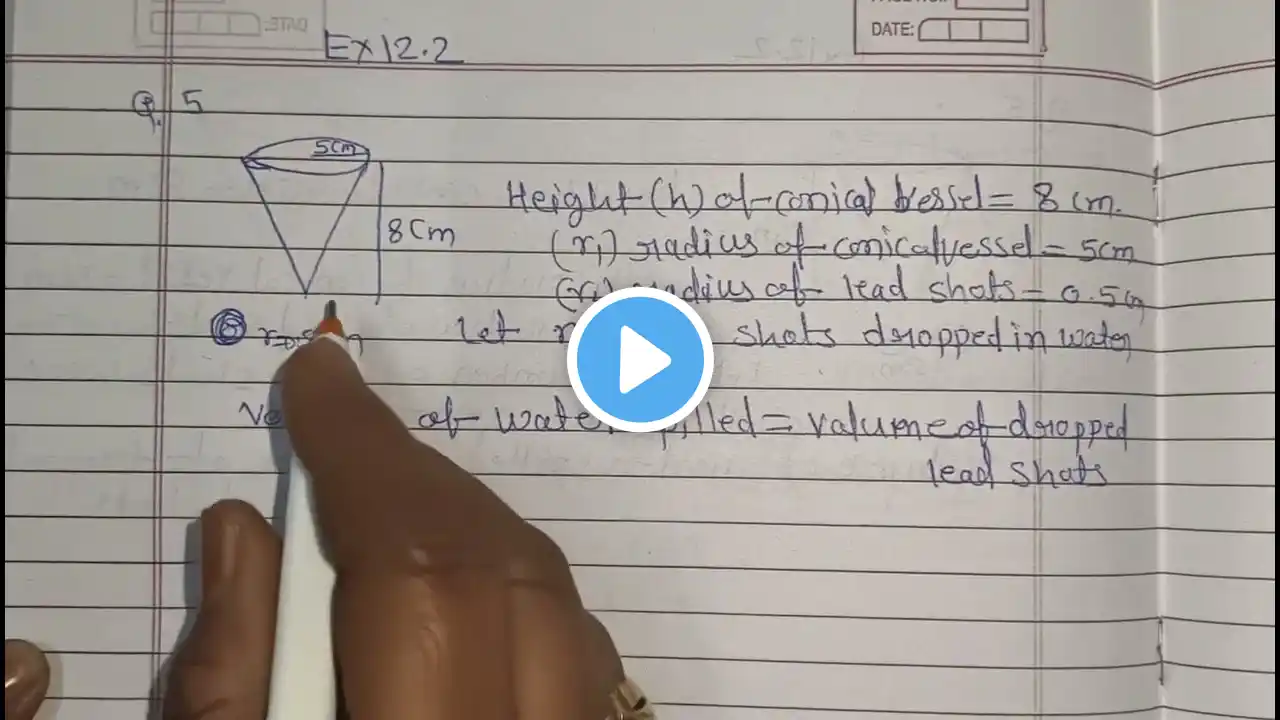 DATE:
Ex 12.2
Q. 5
5cm
8 Cm
Height (h) of conical vessel = 8 cm.
(r1) radius of conical vessel = 5cm
radius of lead shots = 0.5cm
Let shots dropped in water
of water filled = volume of dropped
lead shots